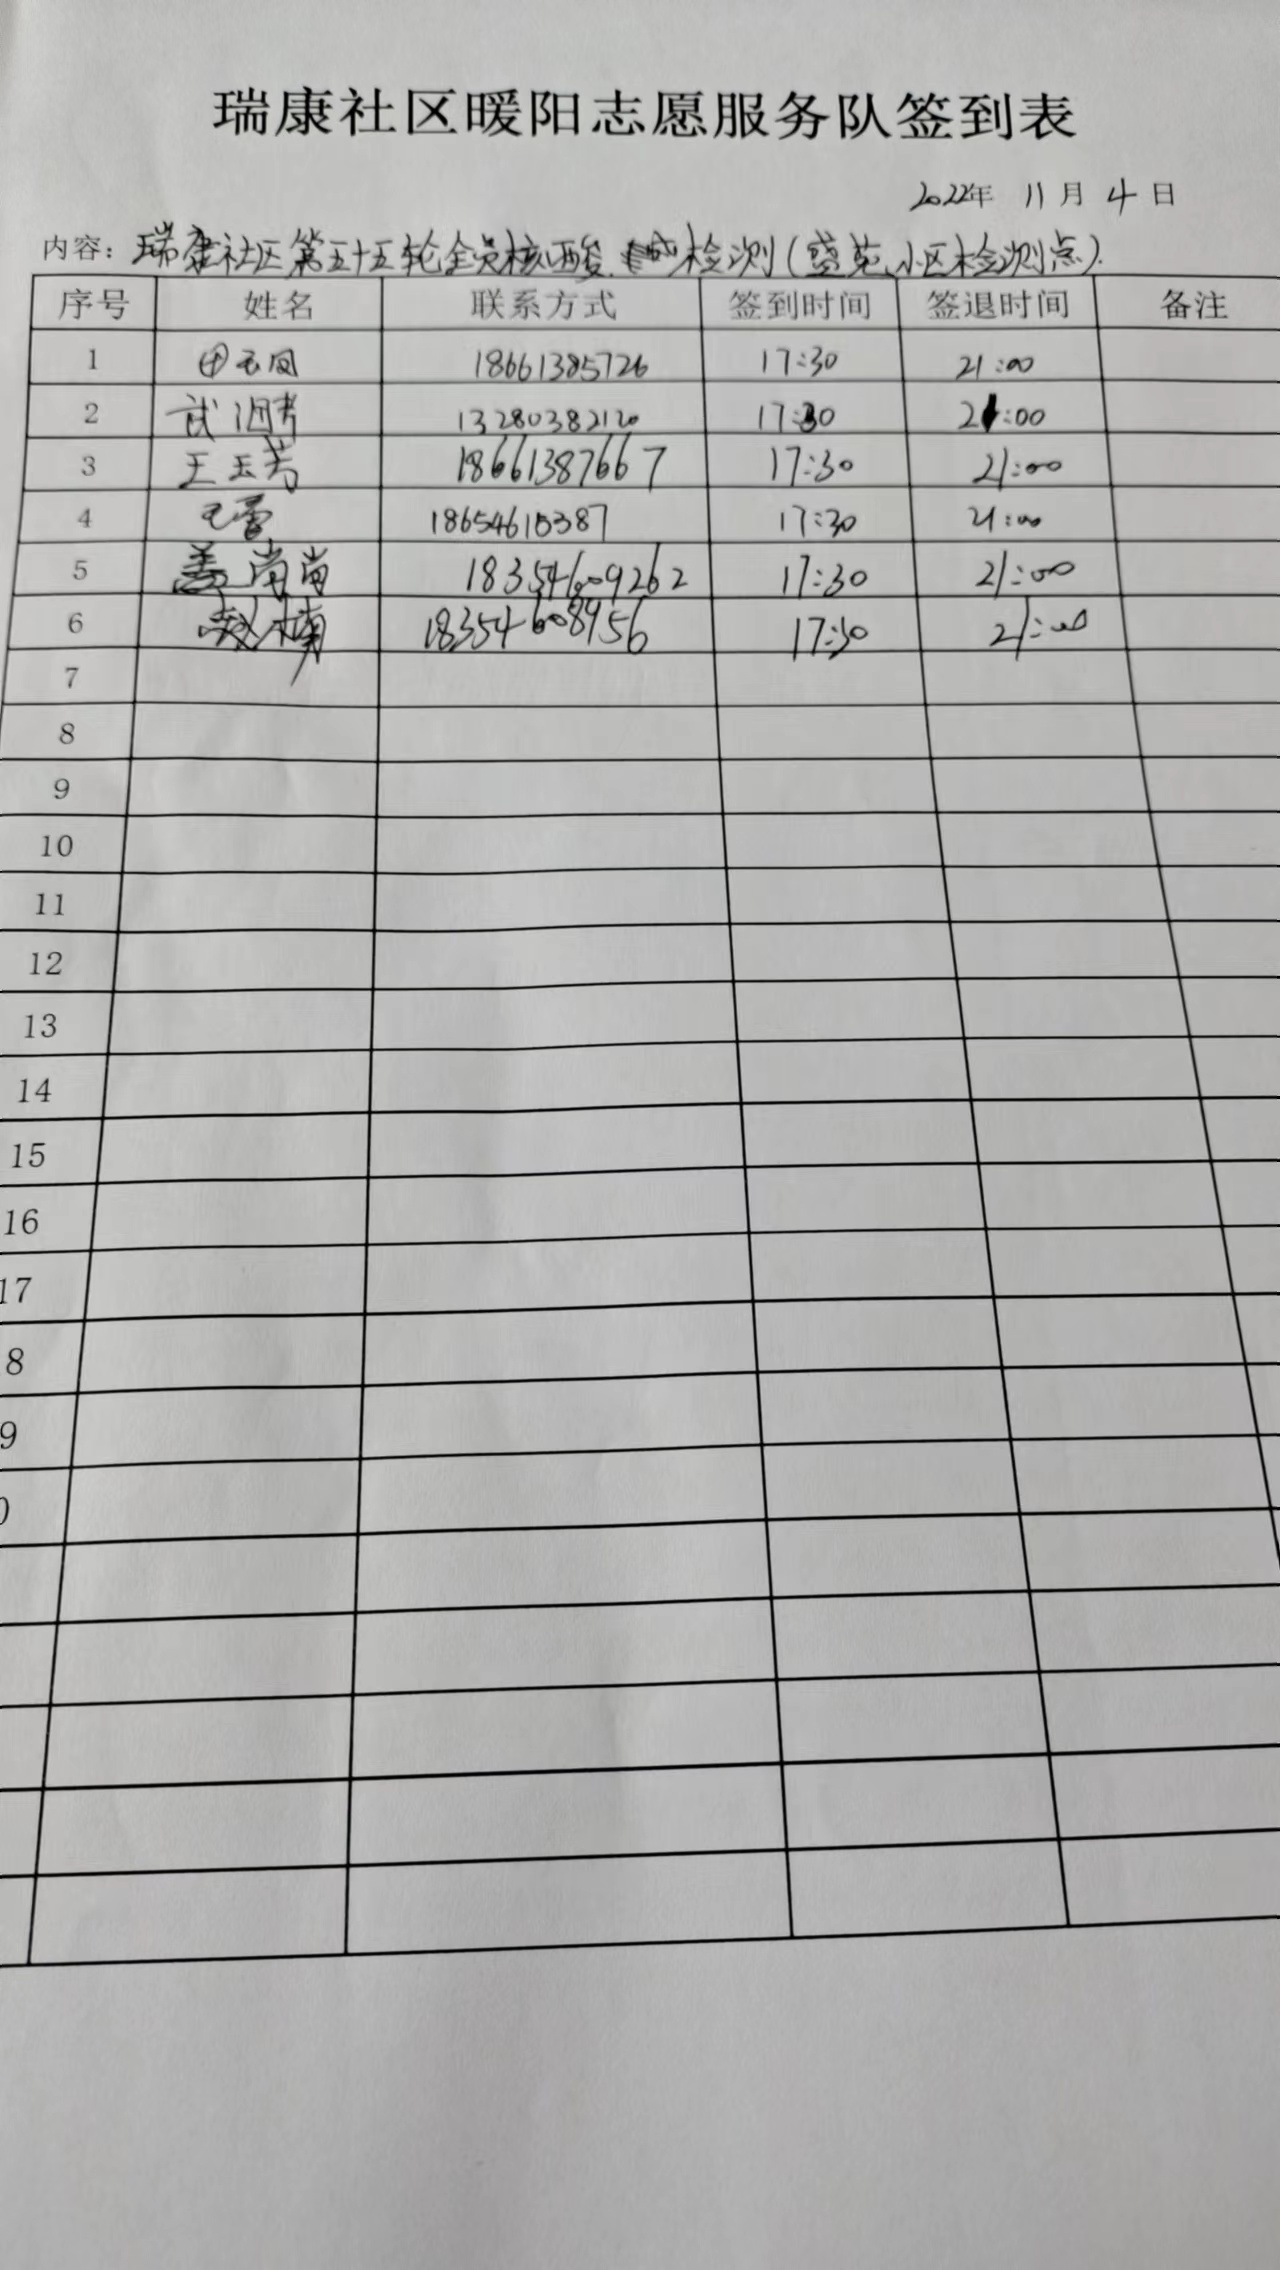 瑞康社区暖阳志愿服务队签到表
2022年 11月 4日
内容：瑞康社区第五十五轮全员核酸检测（盛苑小区检测点）
序号 姓名 联系方式 签到时间 签退时间 备注
1 18661385726 17:30 21:00
2 13280382120 17:30 21:00
3 王玉芳 18661387667 17:30 21:00
4 王雪 18654615387 17:30 21:00
5 盖尚尚 18354609262 17:30 21:00
6 赵楠 18354608956 17:30 21:00
7
8
9
10
11
12
13
14
15
16
17
8
9
0